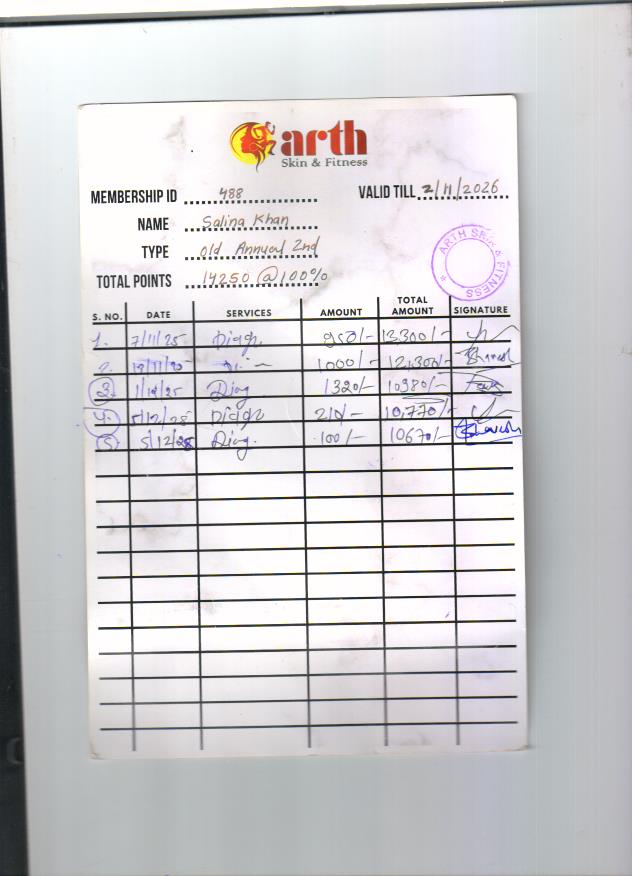 arth
Skin & Fitness
MEMBERSHIP ID 488 VALID TILL 2/11/2026
NAME Salina Khan
TYPE Old Annual 2nd
TOTAL POINTS 14250 @ 100%
ARTH SKIN & FITNESS
S. NO. DATE SERVICES AMOUNT TOTAL AMOUNT SIGNATURE
1. 7/11/25 950/- 13,300/-
2. 1000/- 12,300/-
3. 1/12/25 1320/- 10980/-
4. 5/12/25 210/- 10,770/-
5. 5/12/25 100/- 10670/-